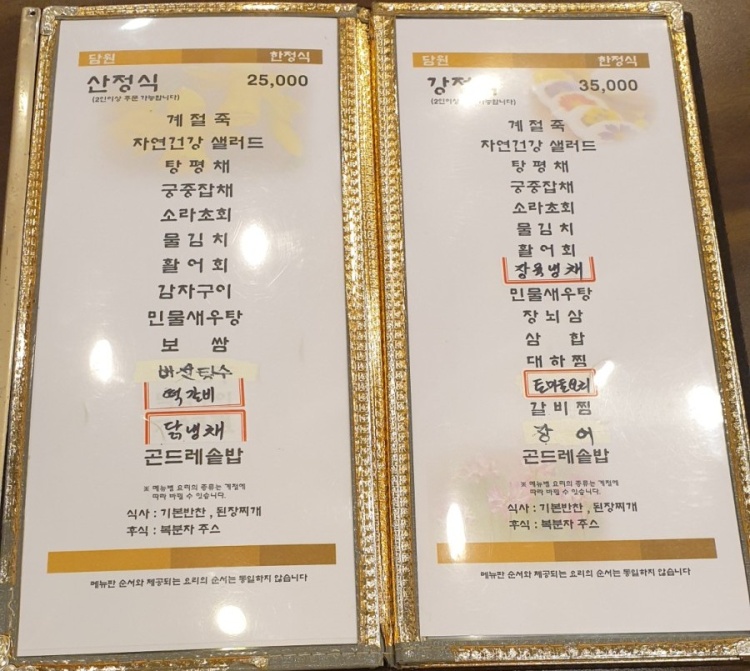 담원 한정식
산정식 25,000
(2인이상 주문 가능합니다)
계절죽
자연건강 샐러드
탕평채
궁중잡채
소라초회
물김치
활어회
감자구이
민물새우탕
보쌈
버섯탕수
떡갈비
닭냉채
곤드레솥밥
※ 메뉴별 요리의 종류는 계절에
따라 바뀔 수 있습니다.
식사 : 기본반찬 , 된장찌개
후식 : 복분자 주스
메뉴판 순서와 제공되는 요리의 순서는 동일하지 않습니다
담원 한정식
강정식 35,000
(2인이상 가능합니다)
계절죽
자연건강 샐러드
탕평채
궁중잡채
소라초회
물김치
활어회
장육냉채
민물새우탕
장뇌삼
삼합
대하찜
토마토요리
갈비찜
장어
곤드레솥밥
※ 메뉴별 요리의 종류는 계절에
따라 바뀔 수 있습니다.
식사 : 기본반찬 , 된장찌개
후식 : 복분자 주스
메뉴판 순서와 제공되는 요리의 순서는 동일하지 않습니다